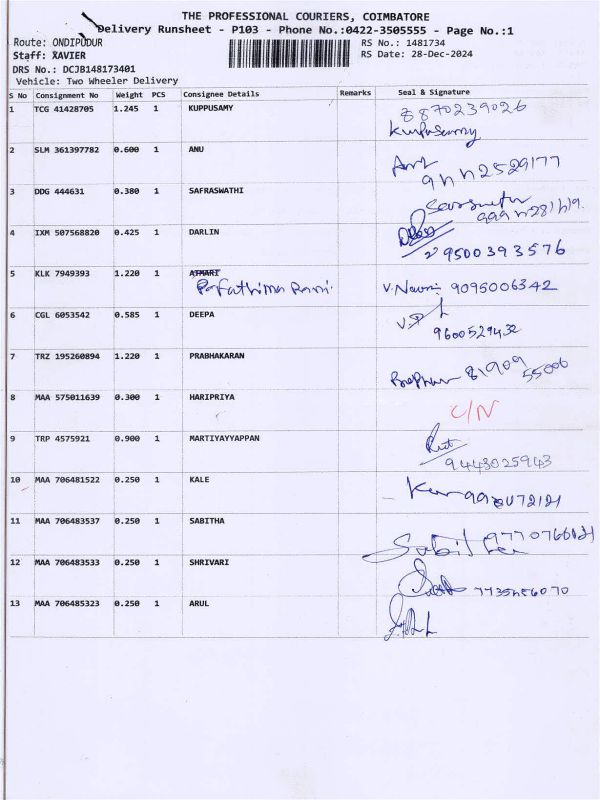 THE PROFESSIONAL COURIERS, COIMBATORE
Delivery Runsheet - P103 - Phone No.:0422-3505555 - Page No.:1
Route: ONDIPUDUR RS No.: 1481734
Staff: XAVIER RS Date: 28-Dec-2024
DRS No.: DCJB148173401
Vehicle: Two Wheeler Delivery
S No Consignment No Weight PCS Consignee Details Remarks Seal & Signature
1 TCG 41428705 1.245 1 KUPPUSAMY 8870239026
Kuppusamy
2 SLM 361397782 0.600 1 ANU
3 DDG 444631 0.380 1 SAFRASWATHI
4 IXM 507568820 0.425 1 DARLIN
9500393576
5 KLK 7949393 1.220 1 ATMARI V. 9095006342
Fathima Rani
6 CGL 6053542 0.585 1 DEEPA
9600529432
7 TRZ 195260894 1.220 1 PRABHAKARAN
81909
55006
8 MAA 575011639 0.300 1 HARIPRIYA C/N
9 TRP 4575921 0.900 1 MARTIYAYYAPPAN
9443025943
10 MAA 706481522 0.250 1 KALE
11 MAA 706483537 0.250 1 SABITHA
12 MAA 706483533 0.250 1 SHRIVARI
13 MAA 706485323 0.250 1 ARUL